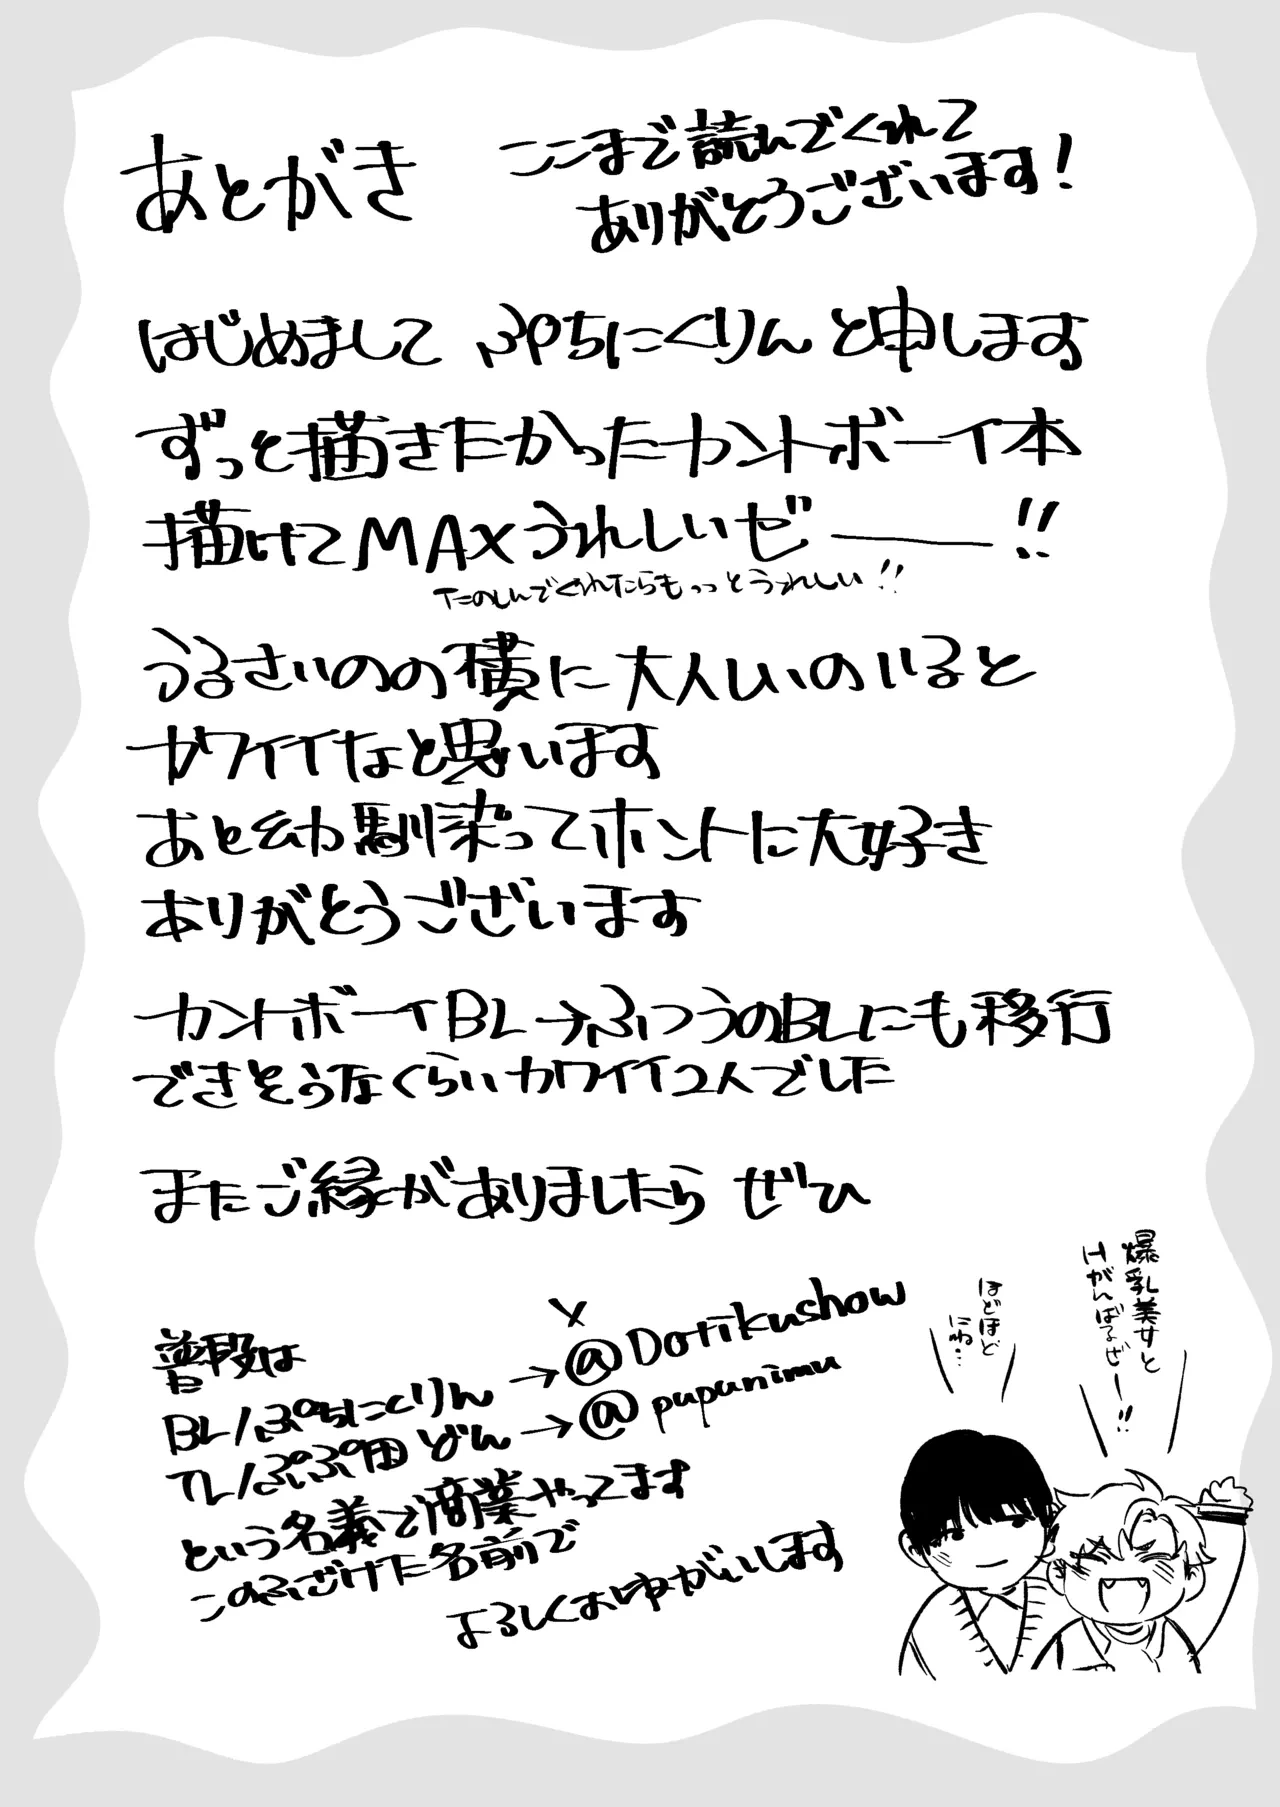 あとがき
ここまで読んでくれて
ありがとうございます!
はじめまして ぷちにくりんと申します
ずっと描きたかったカントボーイ本
描けてMAXうれしいゼ――!!
たのしんでくれたらもっとうれしい!!
うるさいのの横に大人しいのいると
カワイイなと思います
あと幼馴染ってホントに大好き
ありがとうございます
カントボーイBL→ふつうのBLにも移行
できそうなくらいカワイイ2人でした
またご縁がありましたら ぜひ
爆乳美女と
Hがんばるぜー!!
ほどほど
にね…
普段は
X
BL/ぷちにくりん→@Dotikushow
TL/ぷぷ田どん→@pupunimu
という名義で商業やってます
このふざけた名前で
よろしくおねがいします